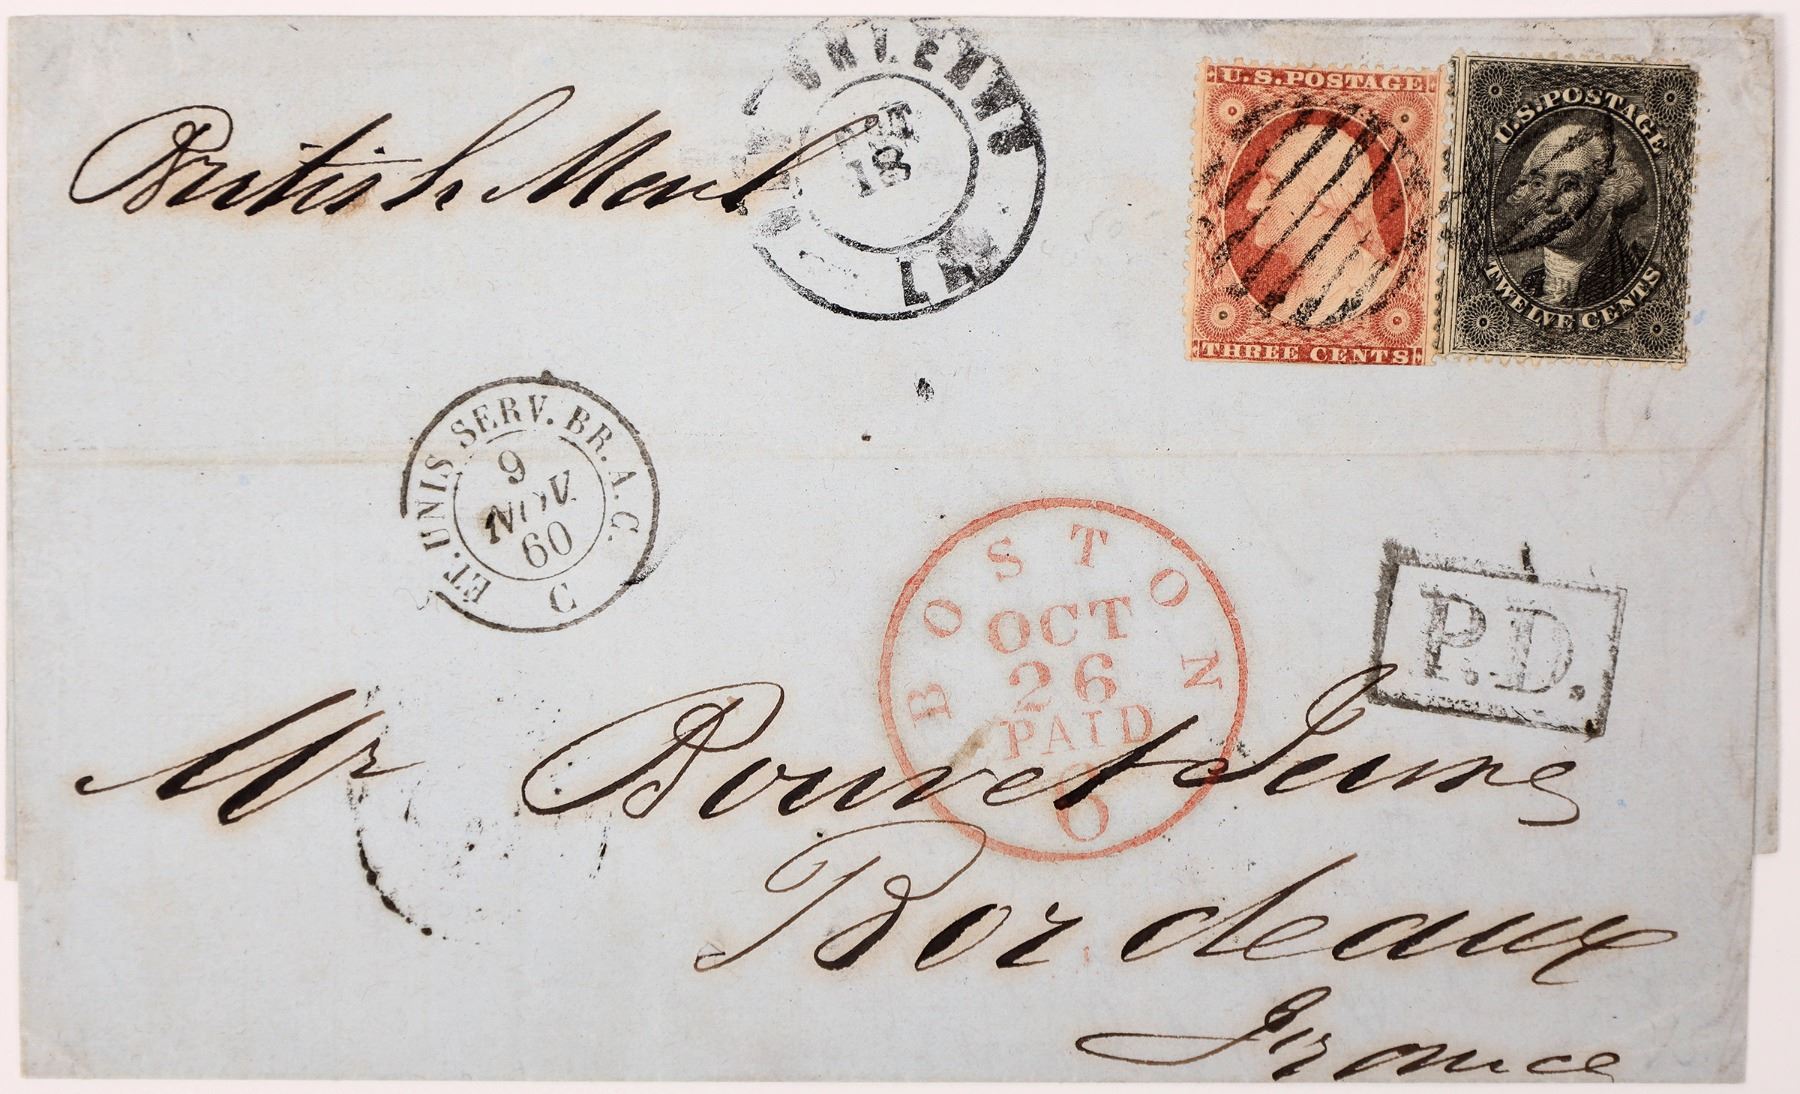 British Mail
OCT
18
LA
U.S. POSTAGE
THREE CENTS
U.S. POSTAGE
TWELVE CENTS
ET. UNIS SERV. BR. A. C.
9
NOV.
60
C
BOSTON
OCT
26
PAID
6
P.D.
Mr Bouvet Jeune
Bordeaux
France